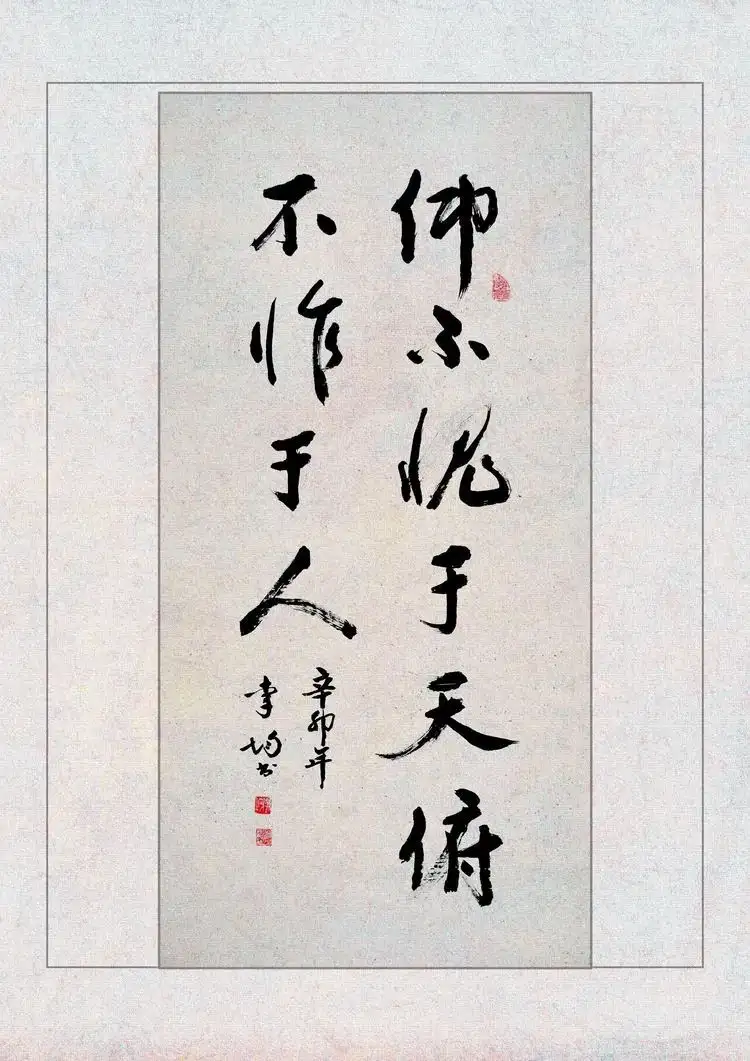 仰不愧于天俯
不怍于人
辛卯年
李均书